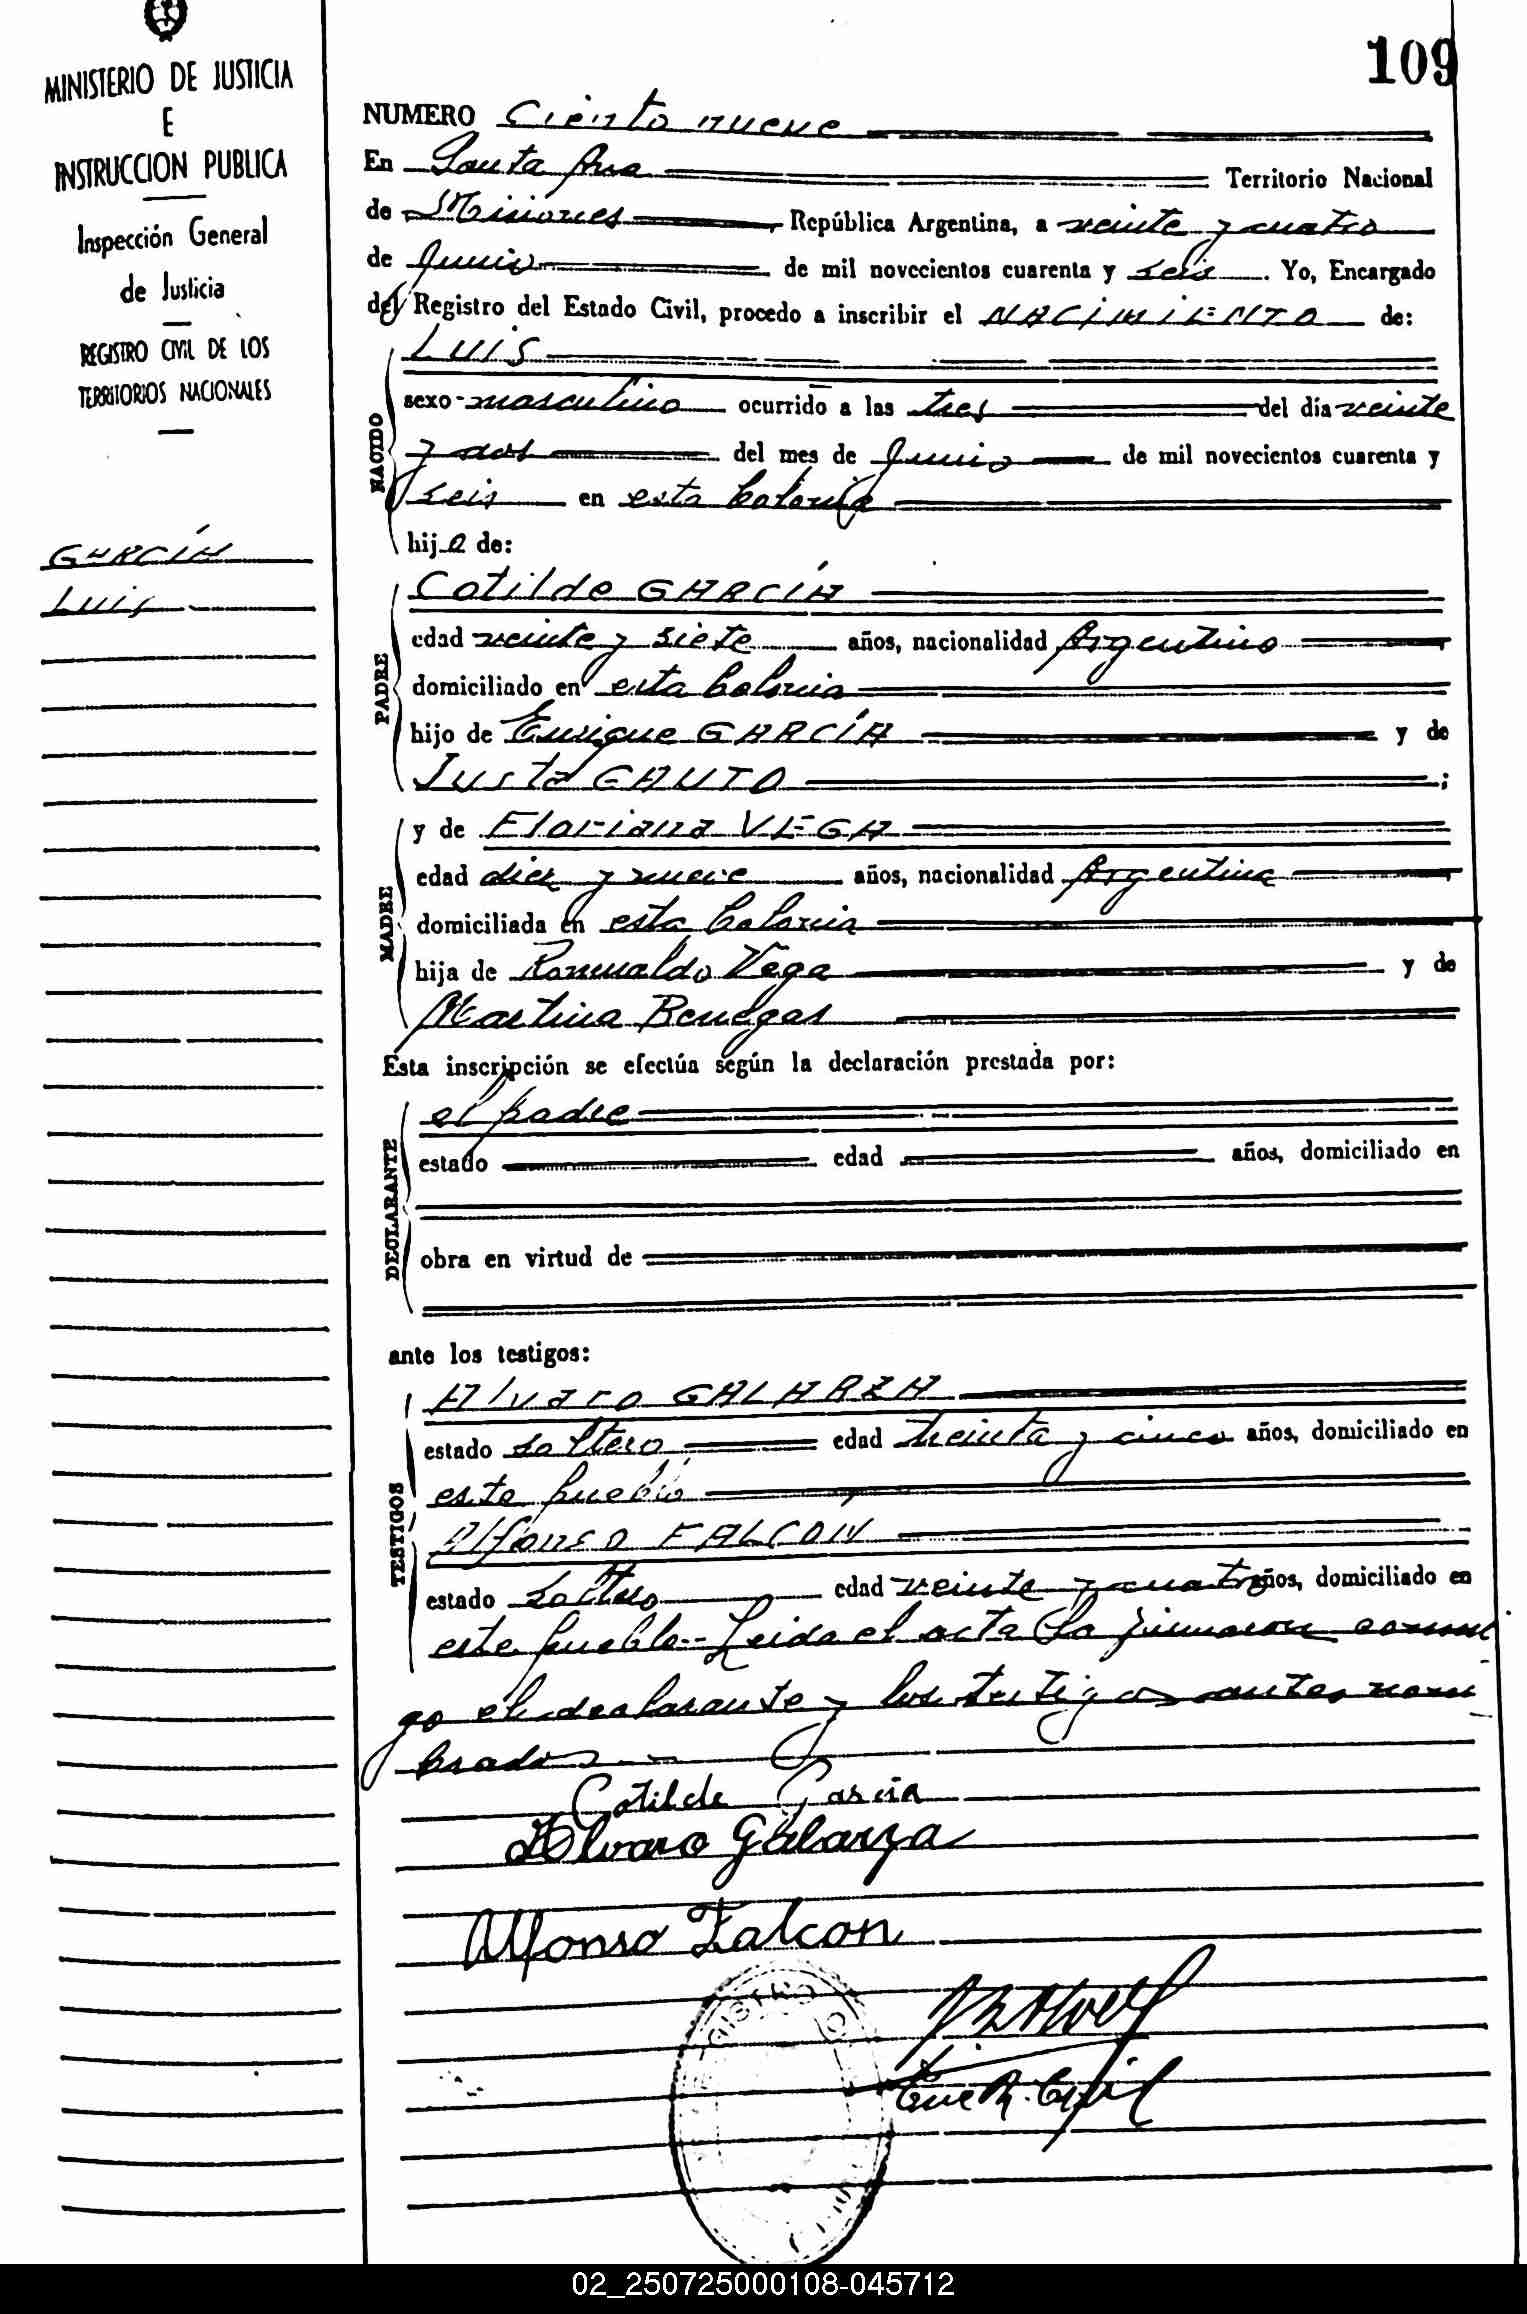 109
MINISTERIO DE JUSTICIA
E
INSTRUCCION PUBLICA
Inspección General
de Justicia
REGISTRO CIVIL DE LOS
TERRITORIOS NACIONALES
GARCÍA
LUIS
NUMERO Ciento nueve
En Santa Ana Territorio Nacional
de Misiones República Argentina, a veinte y cuatro
de Junio de mil novecientos cuarenta y seis. Yo, Encargado
del Registro del Estado Civil, procedo a inscribir el NACIMIENTO de:
NACIDO
LUIS
sexo masculino ocurrido a las tres del día veinte
y dos del mes de Junio de mil novecientos cuarenta y
seis en esta Colonia
hijo de:
PADRE
Cotilde GARCÍA
edad veinte y siete años, nacionalidad Argentino
domiciliado en esta Colonia
hijo de Enrique GARCÍA y de
Justa GAUTO;
MADRE
y de Floriana VEGA
edad diez y nueve años, nacionalidad Argentina
domiciliada en esta Colonia
hija de Romualdo Vega y de
Martina Benegas
Esta inscripción se efectúa según la declaración prestada por:
DECLARANTE
el padre
estado edad años, domiciliado en
obra en virtud de
ante los testigos:
TESTIGOS
Alvaro GALARZA
estado soltero edad treinta y cinco años, domiciliado en
este pueblo
Alfonso FALCON
estado soltero edad veinte y cuatro años, domiciliado en
este pueblo.- Leida el acta la firmaron conmi
go el declarante y los testigos antes nom
brados
Cotilde Garcia
Alvaro Galarza
Alfonso Falcon
Enc R. Civil
REGISTRO
02_250725000108-045712